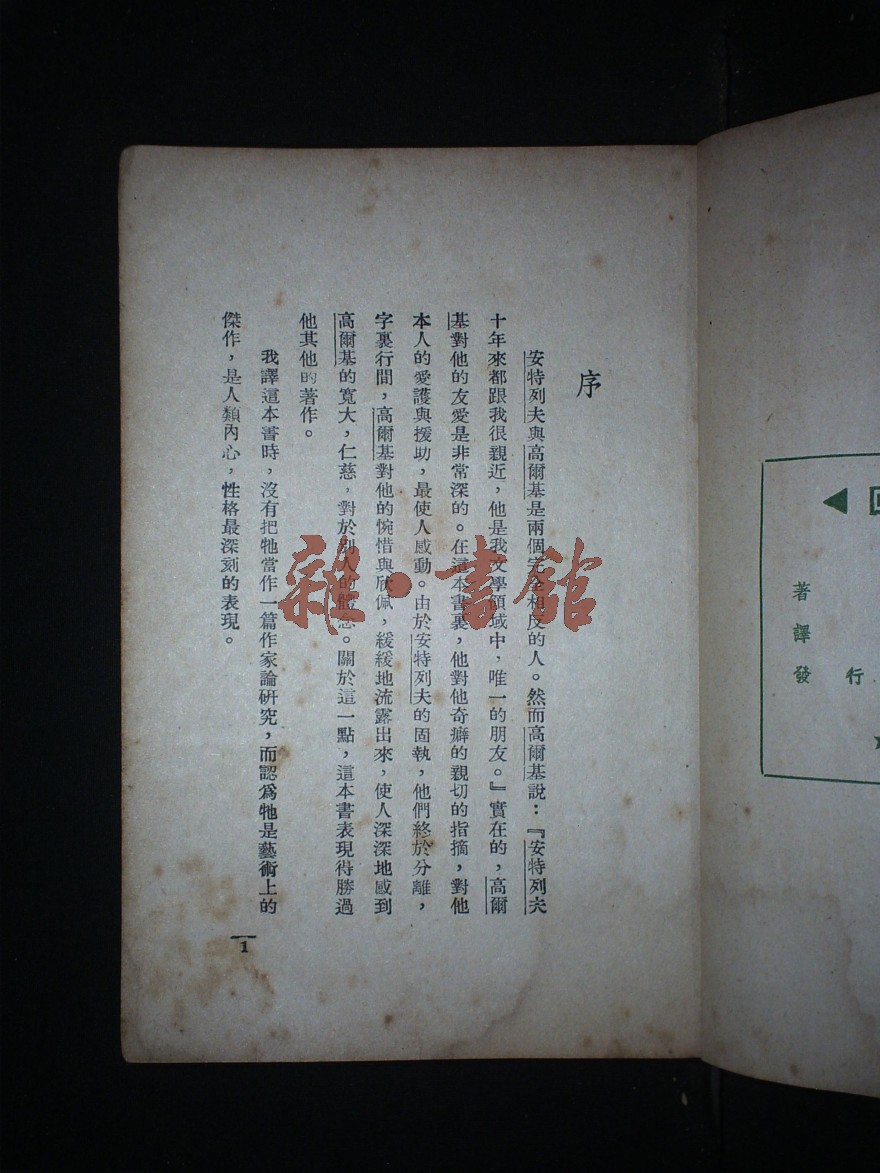 序
安特列夫與高爾基是兩個完全相反的人。然而高爾基說：『安特列夫
十年來都跟我很親近，他是我文學領域中，唯一的朋友。』實在的，高爾
基對他的友愛是非常深的。在這本書裏，他對他奇癖的親切的指摘，對他
本人的愛護與援助，最使人感動。由於安特列夫的固執，他們終於分離，
字裏行間，高爾基對他的惋惜與欣佩，緩緩地流露出來，使人深深地感到
高爾基的寬大，仁慈，對於別人的體念。關於這一點，這本書表現得勝過
他其他的著作。
我譯這本書時，沒有把牠當作一篇作家論研究，而認爲牠是藝術上的
傑作，是人類內心，性格最深刻的表現。
1
著
譯
發行
雜·書館